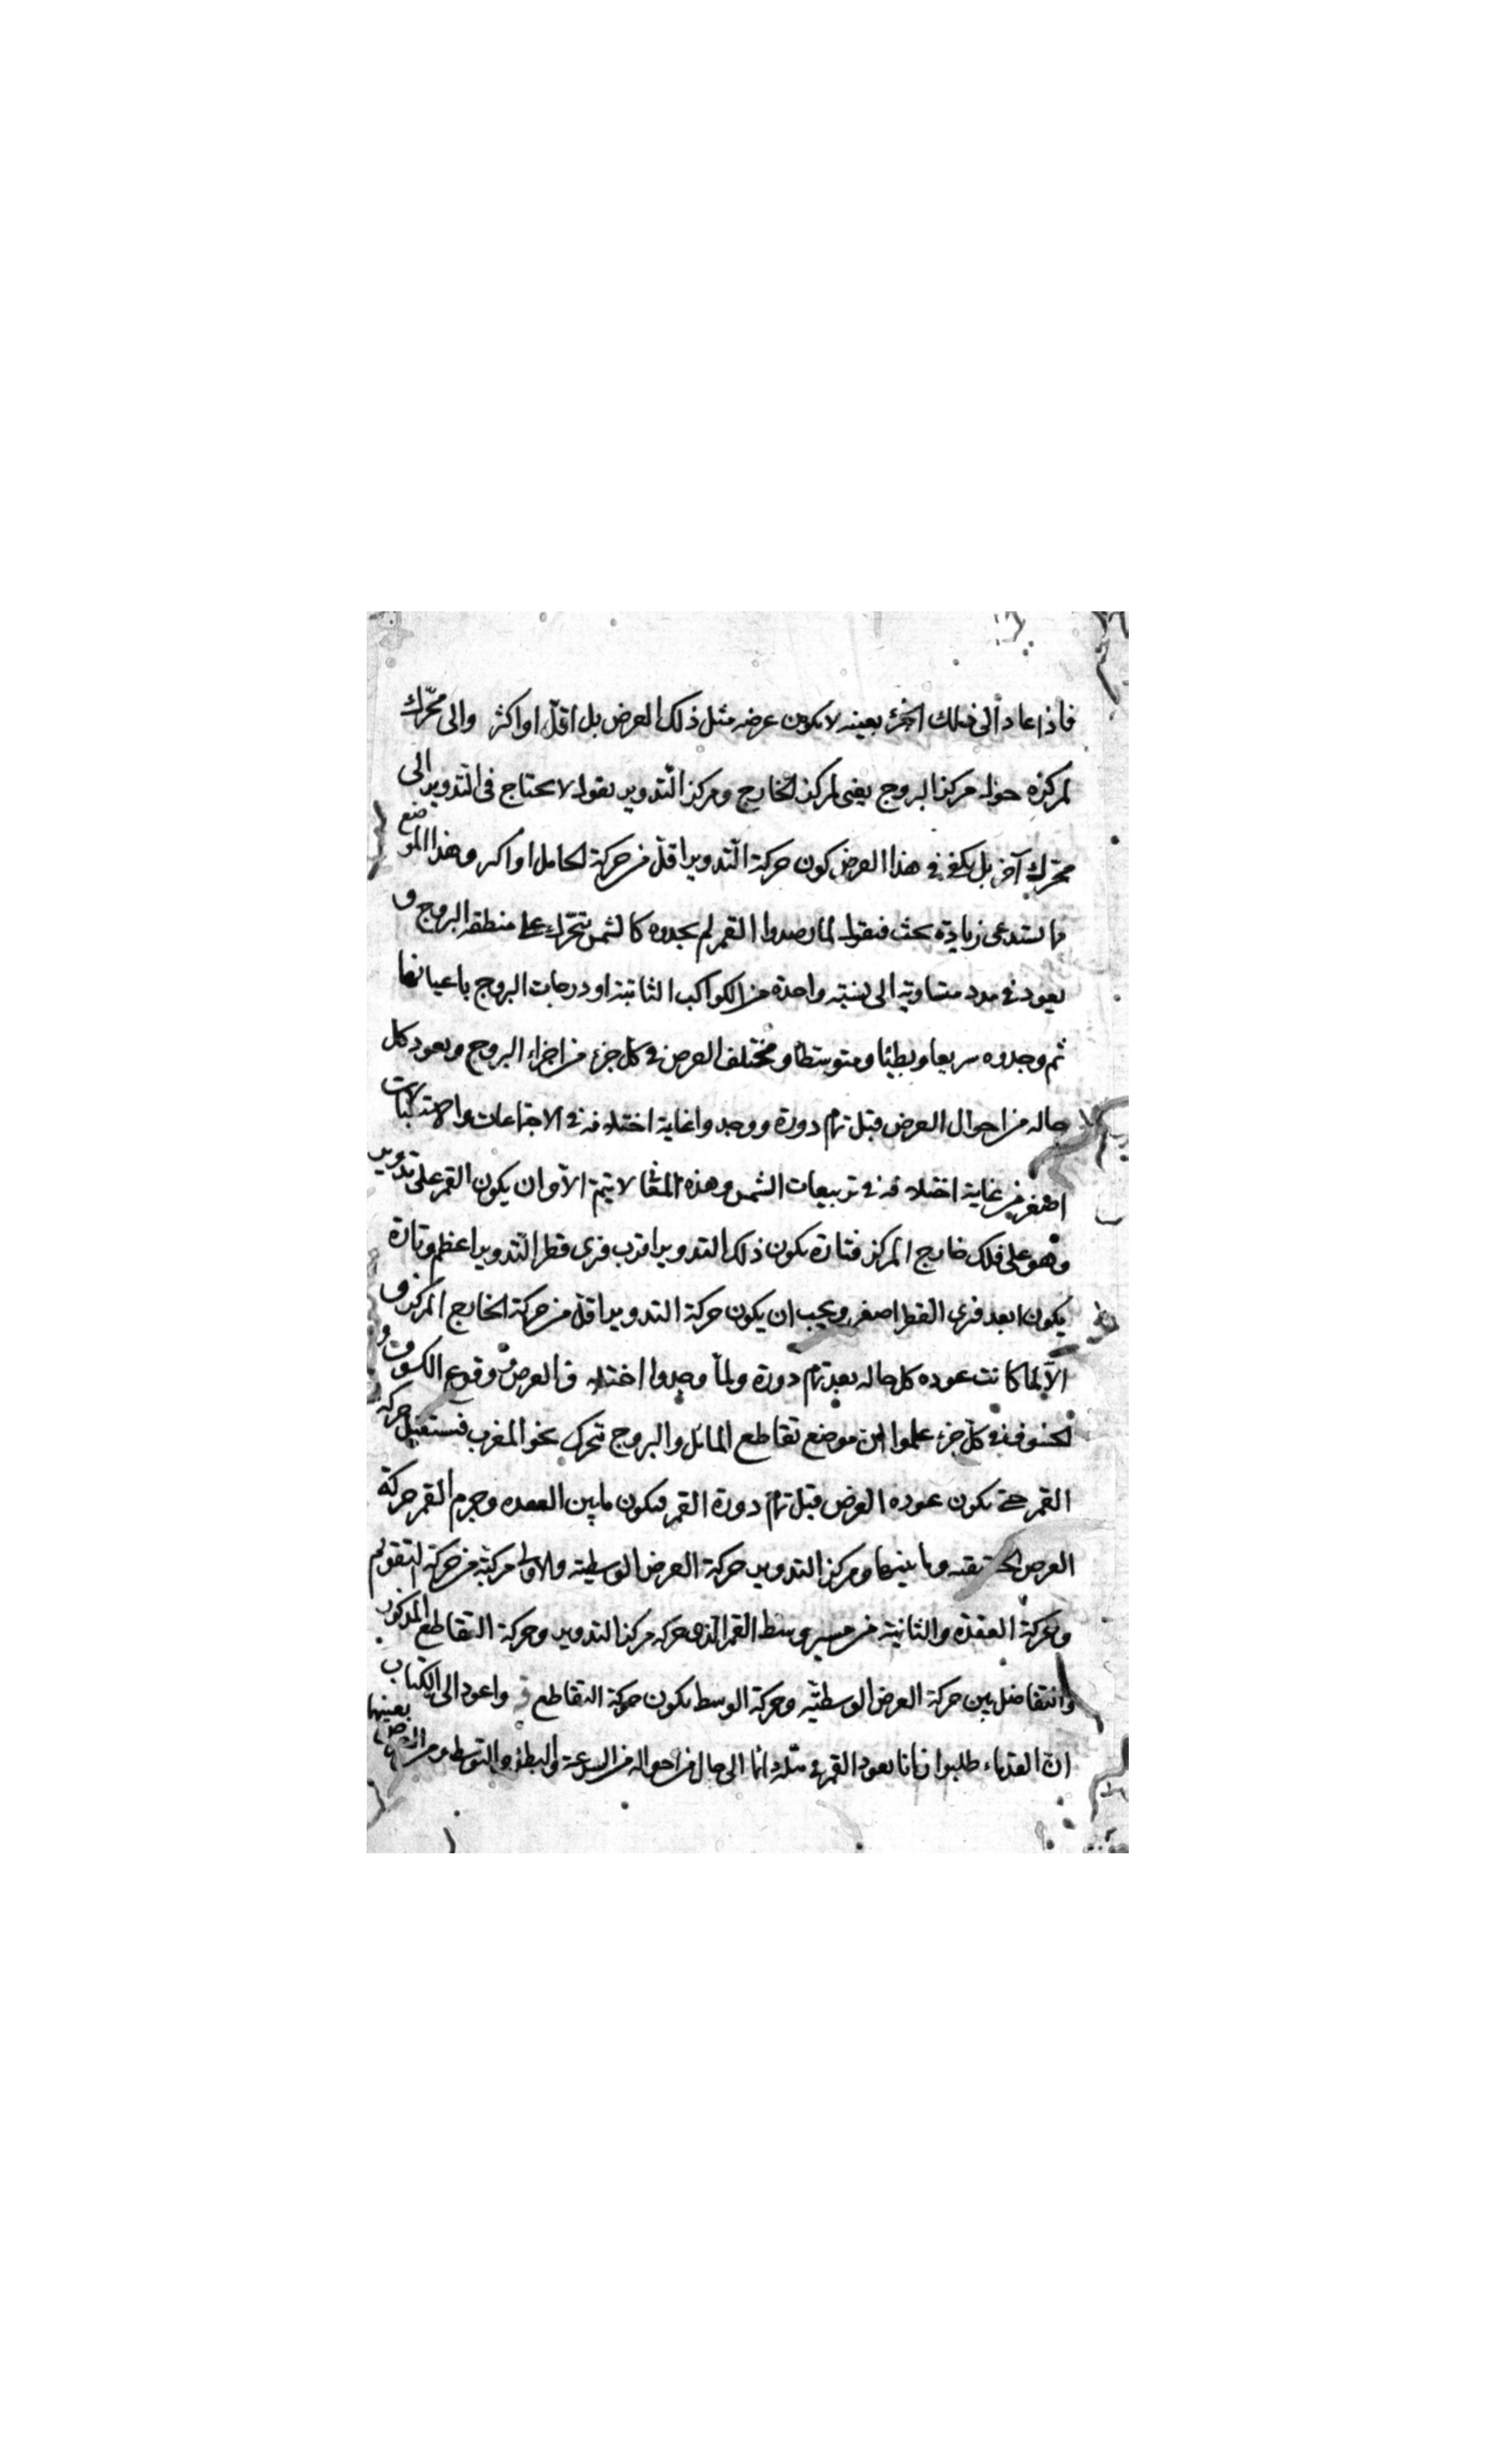 فاذا عاد الى ذلك الجزء بعينه لا يكون عرضه مثل ذلك العرض بل اقلّ او اكثر والى محرّك
لمركزه حول مركز البروج يعنى لمركز الخارج ومركز التّدوير نقول لا يحتاج فى التّدوير الى
محرّك آخر بل يكفى فى هذا العرض كون حركة التّدوير اقلّ من حركة الحامل او اكثر وهذا الموضع
ما يستدعى زيادة بحث فنقول لما رصدوا القمر لم يجدوه كالشمس يتحرّك على منطقة البروج و
يعود فى مدد متساوية الى نسبة واحدة من الكواكب الثابتة او درجات البروج باعيانها
ثم وجدوه سريعا وبطيئا ومتوسّطا ومختلف العرض فى كل جزء من اجزاء البروج ويعود كل
حاله من احوال العرض قبل تمام دورة ووجدوا غاية اختلافه فى الاجتماعات والاستقبالات
اصغر من غاية اختلافه فى تربيعات الشمس وهذه لا يتمّ الاّ وان يكون القمر على تدوير
وهو على فلك خارج المركز فتارة يكون ذلك التدوير اقرب فيرى قطر التّدوير اعظم وتارة
يكون ابعد فيرى القطر اصغر ويجب ان يكون حركة التدوير اقلّ من حركة الخارج المركز و
الاّ لما كانت عوده كل حاله بعد تمام دورة ولمّا وجدوا اختلافه فى العرض ووقوع الكسوف و
الخسوف فى كلّ جزء علموا انّ موضع تقاطع المائل والبروج يتحرك نحو المغرب فيستقبل حركة
القمر حتى يكون عوده العرض قبل تمام دورة القمر فيكون ما بين العقدة وجرم القمر حركة
العرض الحقيقية وما بينها ومركز التدوير حركة العرض الوسطية والاولى مركبة من حركة التقويم
وحركة العقدة والثانية من مسير وسط القمر الذى حركه مركز التدوير وحركة التقاطع المذكور
والتفاضل بين حركة العرض الوسطيّة وحركة الوسط يكون حركة التقاطع واعود الى الكتاب
انّ القدماء طلبوا زمانا يعود القمر فى مثله دائما الى حال من احواله من السرعة والبطؤ والتوسط بعينها